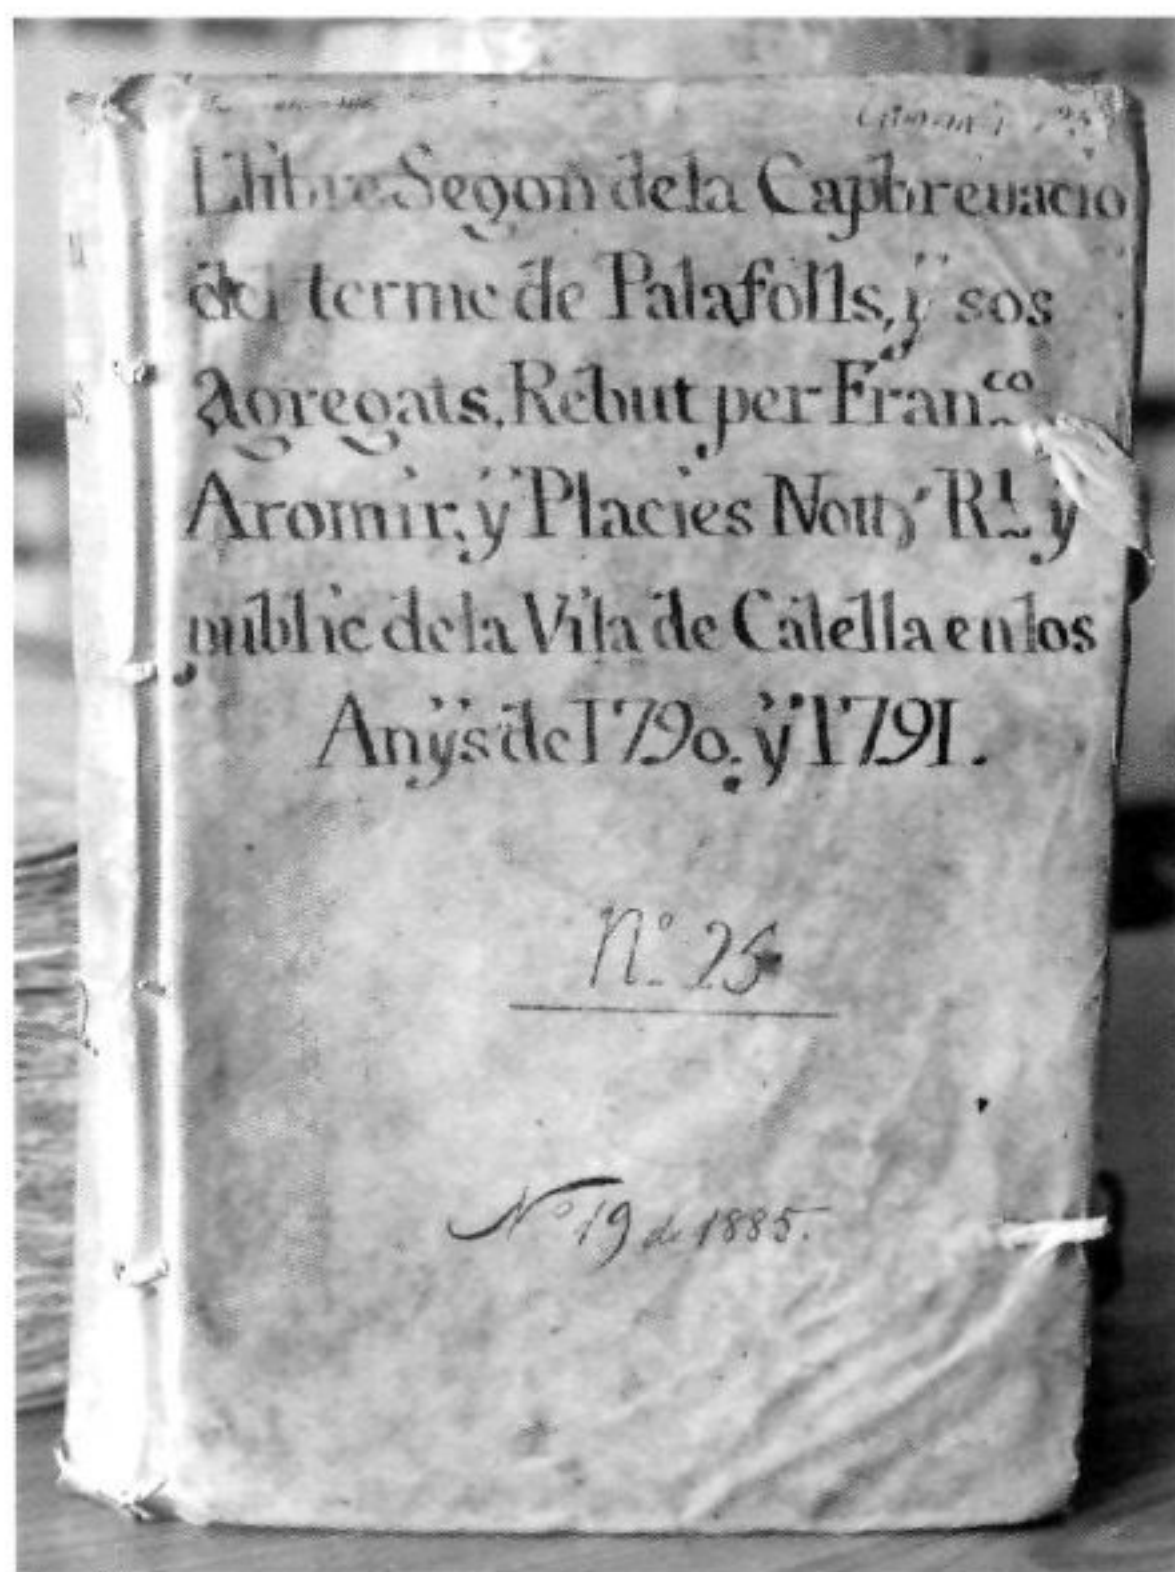 Llibre Segon de la Capbrevacio
del terme de Palafolls, ÿ sos
Agregats, Rebut per Fran.co
Aromir, ÿ Placies Nott.r R.l y
public de la Vila de Calella en los
Anÿs de 1790, ÿ 1791.
N.o 25
No 19 de 1885.